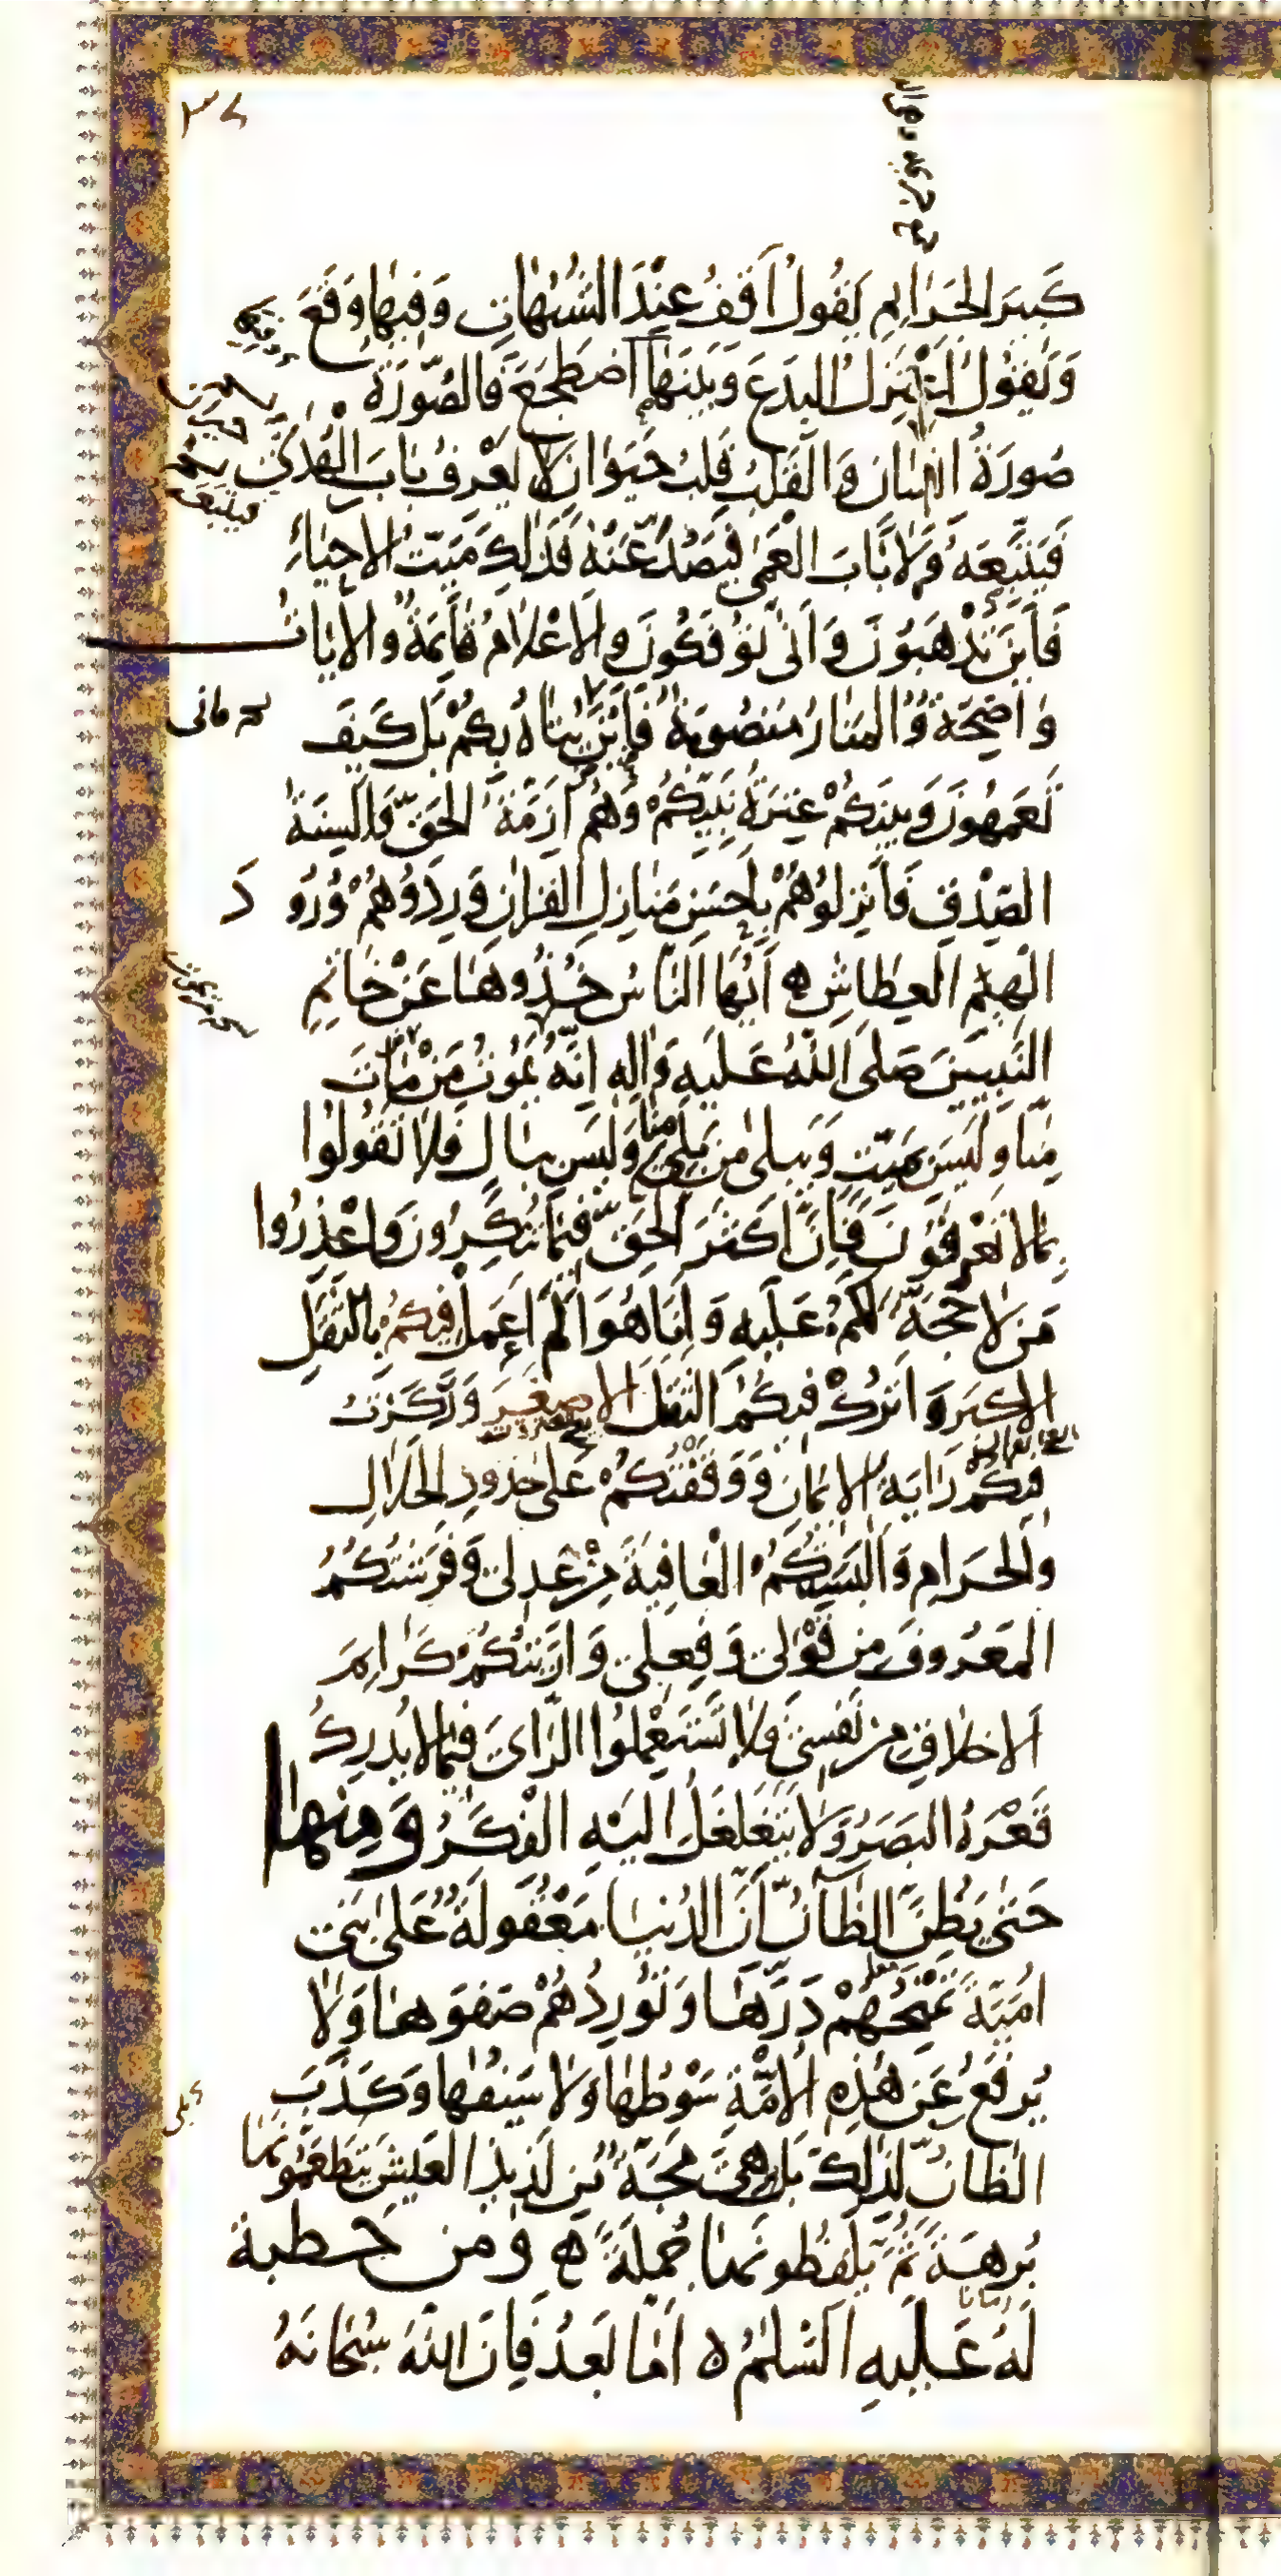 ٣٨
كَبِيرَ الجَرَائِمِ يَقُولُ اَقِفُ عِنْدَ الشُّبُهَاتِ وَفِيهَا وَقَعَ
وَيَقُولُ اَعْتَزِلُ البِدَعَ وَبَيْنَهَا اضْطَجَعَ فَالصُّورَةُ
صُورَةُ اِنْسَانٍ وَالقَلْبُ قَلْبُ حَيَوَانٍ لَا يَعْرِفُ بَابَ الْهُدَىٰ
فَيَتَّبِعَهُ وَلَا بَابَ العَمَىٰ فَيَصُدَّ عَنْهُ فَذٰلِكَ مَيِّتُ الاَحْيَاءِ
فَاَيْنَ تَذْهَبُونَ وَاَنّىٰ تُؤْفَكُونَ وَالاَعْلَامُ قَائِمَةٌ وَالاٰيَاتُ
وَاضِحَةٌ وَالمَنَارُ مَنْصُوبَةٌ فَاَيْنَ يُتَاهُ بِكُمْ بَلْ كَيْفَ
تَعْمَهُونَ وَبَيْنَكُمْ عِتْرَةُ نَبِيِّكُمْ وَهُمْ اَزِمَّةُ الحَقِّ وَاَلْسِنَةُ
الصِّدْقِ فَاَنْزِلُوهُمْ بِاَحْسَنِ مَنَازِلِ القُرْاٰنِ وَرِدُوهُمْ وُرُودَ
الهِيْمِ العِطَاشِ ه اَيُّهَا النَّاسُ خُذُوهَا عَنْ خَاتِمِ
النَّبِيِّينَ صَلَّى اللّٰهُ عَلَيْهِ وَاٰلِهِ اِنَّهُ يَمُوتُ مَنْ مَاتَ
مِنَّا وَلَيْسَ بِمَيِّتٍ وَيَبْلىٰ مَنْ بَلِيَ مِنَّا وَلَيْسَ بِبَالٍ فَلَا تَقُولُوا
بِمَا لَا تَعْرِفُونَ فَاِنَّ اَكْثَرَ الحَقِّ فِيمَا تُنْكِرُونَ وَاعْذِرُوا
مَنْ لَا حُجَّةَ لَكُمْ عَلَيْهِ وَاَنَا هُوَ اَلَمْ اَعْمَلْ فِيكُمْ بِالثَّقَلِ
الاَكْبَرِ وَاَتْرُكْ فِيكُمُ الثَّقَلَ الاَصْغَرَ وَرَكَزْتُ
فِيكُمْ رَايَةَ الاِيمَانِ وَوَقَفْتُكُمْ عَلىٰ حُدُودِ الحَلَالِ
وَالحَرَامِ وَاَلْبَسْتُكُمُ الْعَافِيَةَ مِنْ عَدْلِي وَفَرَشْتُكُمُ
المَعْرُوفَ مِنْ قَوْلِي وَفِعْلِي وَاَرَيْتُكُمْ كَرَائِمَ
الاَخْلَاقِ مِنْ نَفْسِي فَلَا تَسْتَعْمِلُوا الرَّأْيَ فِيمَا لَا يُدْرِكُ
قَعْرَهُ البَصَرُ وَلَا يَتَغَلْغَلُ اِلَيْهِ الْفِكَرُ وَمِنْهَا
حَتّىٰ يَظُنَّ الظَّانُّ اَنَّ الدُّنْيَا مَعْقُولَةٌ عَلىٰ بَنِي
اُمَيَّةَ تَمْنَحُهُمْ دَرَّهَا وَتُورِدُهُمْ صَفْوَهَا وَلَا
يُرْفَعُ عَنْ هٰذِهِ الاُمَّةِ سَوْطُهَا وَلَا سَيْفُهَا وَكَذَبَ
الظَّانُّ لِذٰلِكَ بَلْ هِيَ مَجَّةٌ مِنْ لَذِيذِ العَيْشِ يَتَطَعَّمُونَهَا
بُرْهَةً ثُمَّ يَلْفِظُونَهَا جُمْلَةً ه وَمِنْ خُطْبَةٍ
لَهُ عَلَيْهِ السَّلٰمُ ه اَمَّا بَعْدُ فَاِنَّ اللّٰهَ سُبْحَانَهُ